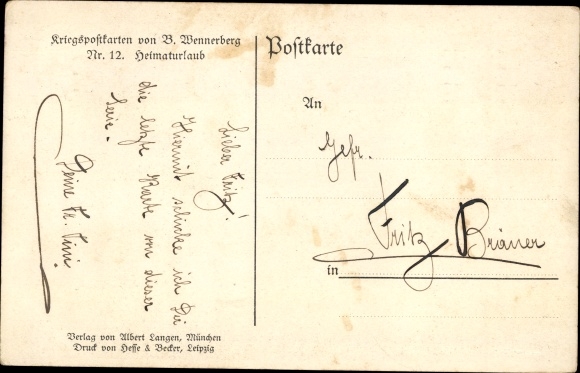 Kriegspostkarten von B. Wennerberg
Nr. 12. Heimaturlaub
Lieber Fritz!
Hiermit schicke ich Dir
die letzte Karte von dieser
Serie.
Deine kl. Tini.
Verlag von Albert Langen, München
Druck von Hesse & Becker, Leipzig
Postkarte
An
Gefr.
Fritz Bräuer
in